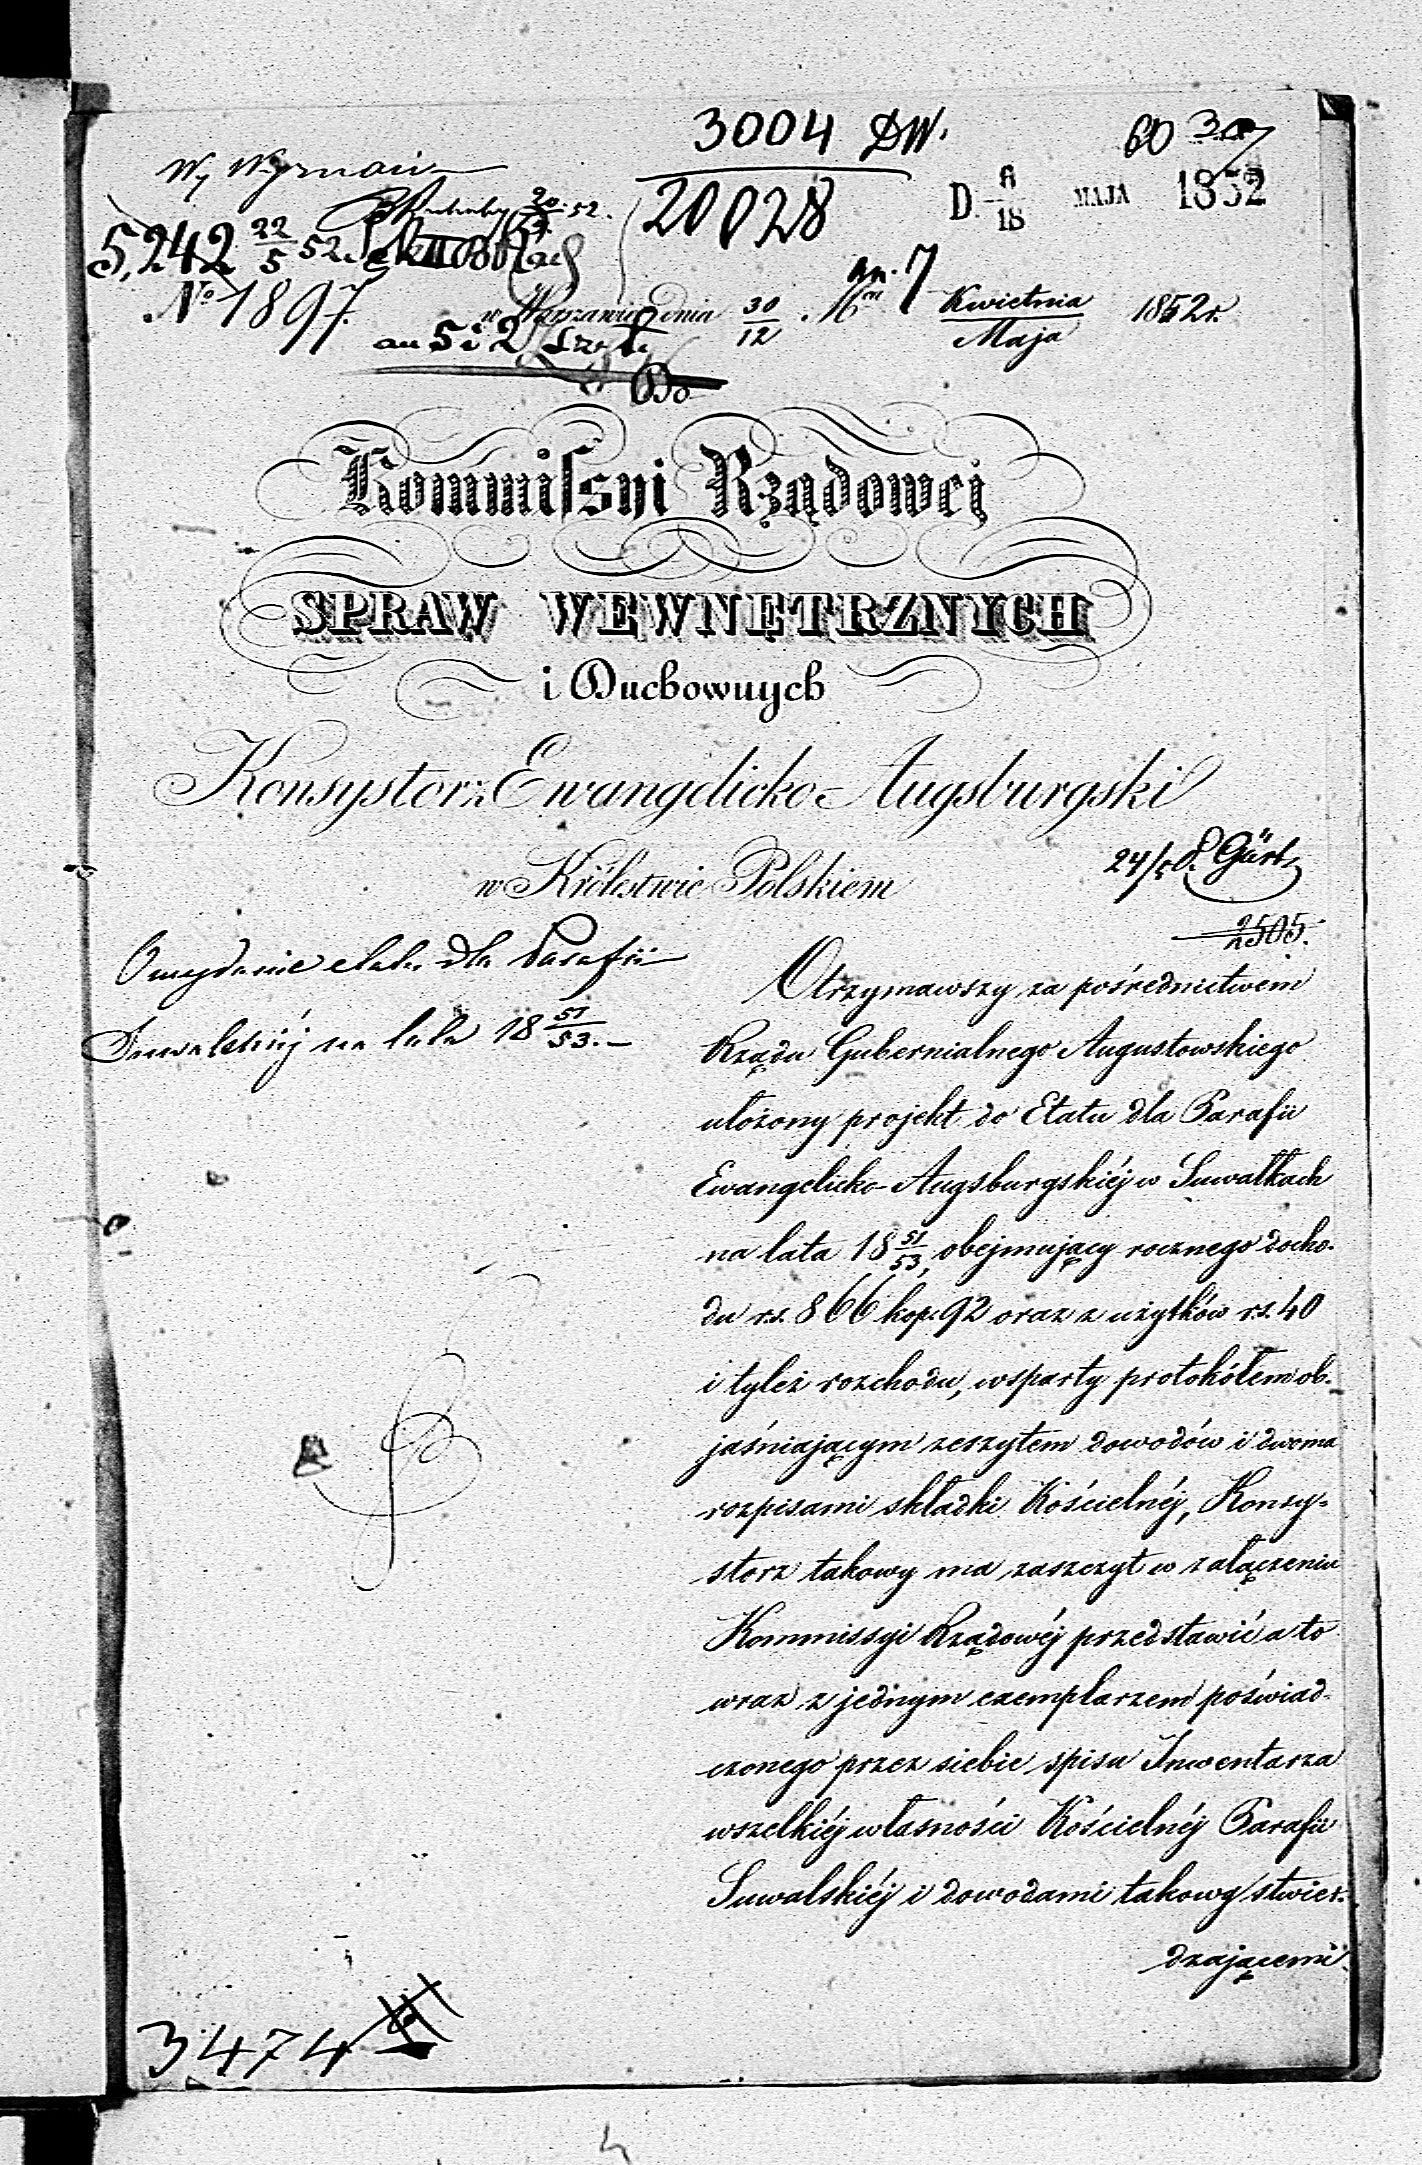 3004 DW.
20028
60
D. 6/18 MAJA 1852
W. Wyznań
20/5 52.
5,242 22/5 52.
№ 1897.
w Warszawie dnia 30/12 Kwietnia/Maja 1852 r.
an 5 i 2
Do
Kommissyi Rządowej
SPRAW WEWNĘTRZNYCH
i Duchownych
Konsystorz Ewangelicko-Augsburgski
w Królestwie Polskiem
24/5
2505.
O wydanie etatu dla Parafii
Suwalskiéj na lata 18 51/53.
Otrzymawszy za pośrednictwem
Rządu Gubernialnego Augustowskiego
ułożony projekt do Etatu dla Parafii
Ewangelicko-Augsburgskiéj w Suwałkach
na lata 18 51/53, obejmujący rocznego docho-
du r.s. 866 kop. 92 oraz z użytków r.s. 40
i tyleż rozchodu, wsparty protokółem ob-
jaśniającym zeszytem dowodów i dwoma
rozpisami składki Kościelnéj, Konsy-
storz takowy ma zaszczyt w załączeniu
Kommissyi Rządowéj przedstawić a to
wraz z jednym exemplarzem poświad-
czonego przez siebie spisu Inwentarza
wszelkiéj własności Kościelnéj Parafii
Suwalskiéj i dowodami takowy stwier-
dzającemi
3474